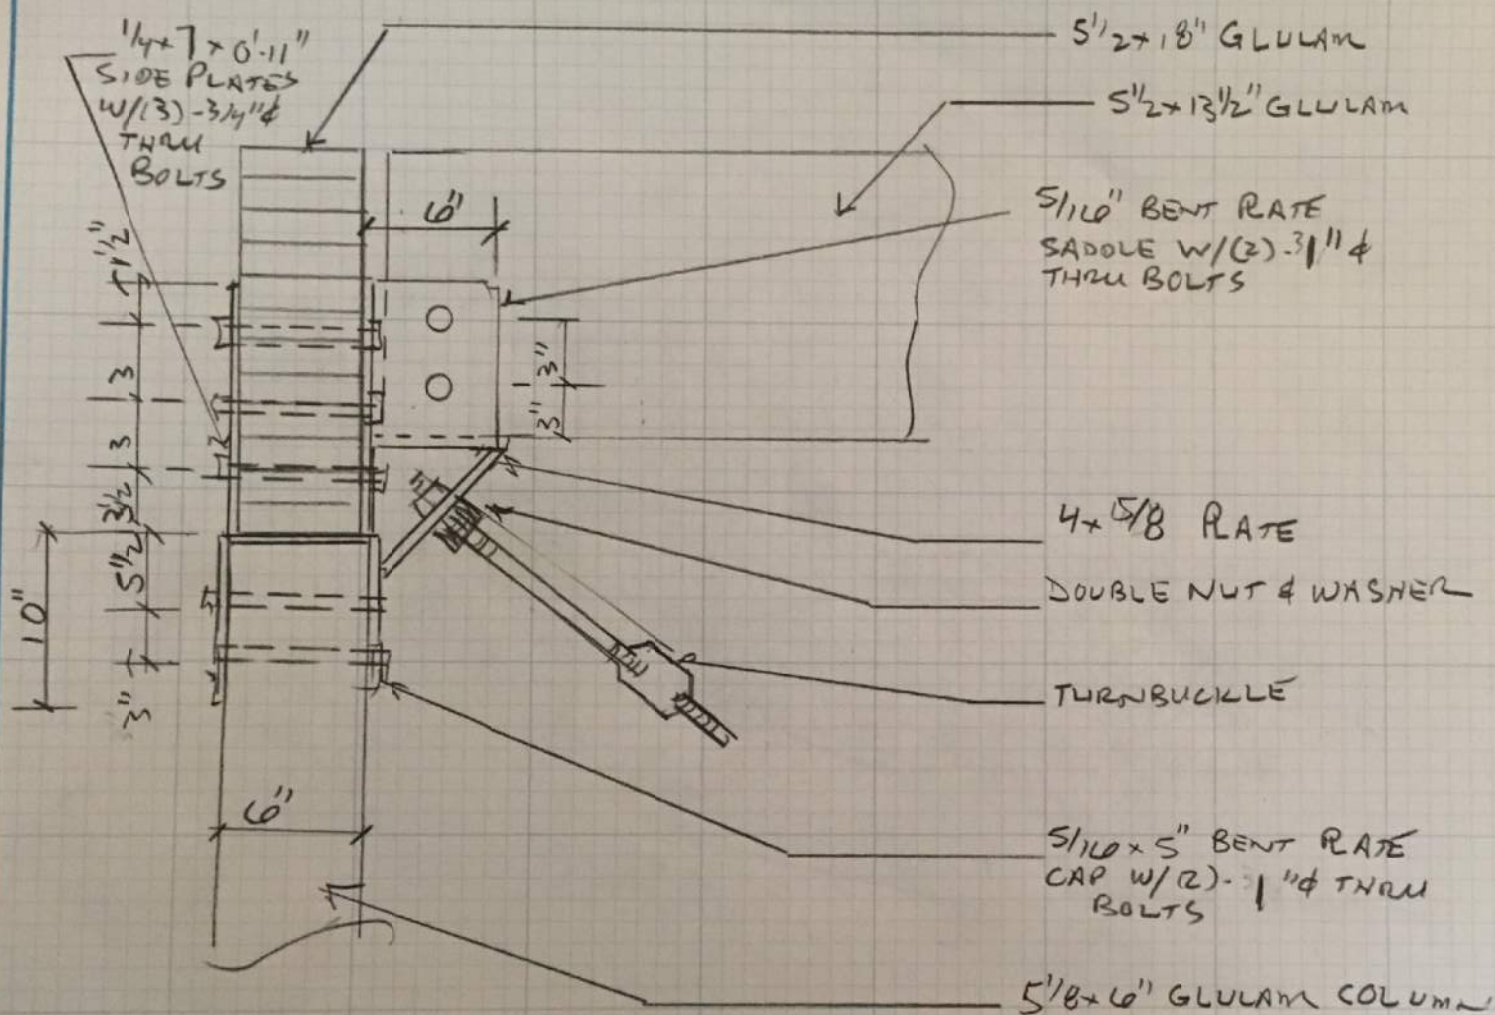 1/4 x 7 x 0'-11"
SIDE PLATES
W/(3)-3/4"¢
THRU
BOLTS
5 1/2 x 18" GLULAM
5 1/2 x 13 1/2" GLULAM
5/16" BENT PLATE
SADDLE W/(2)-1"¢
THRU BOLTS
6"
1 1/2"
3
3
3 1/2
5 1/2
3"
10"
3"
3"
4 x 5/8 PLATE
DOUBLE NUT & WASHER
TURNBUCKLE
6"
5/16 x 5" BENT PLATE
CAP W/(2)-1"¢ THRU
BOLTS
5 1/8 x 6" GLULAM COLUMN